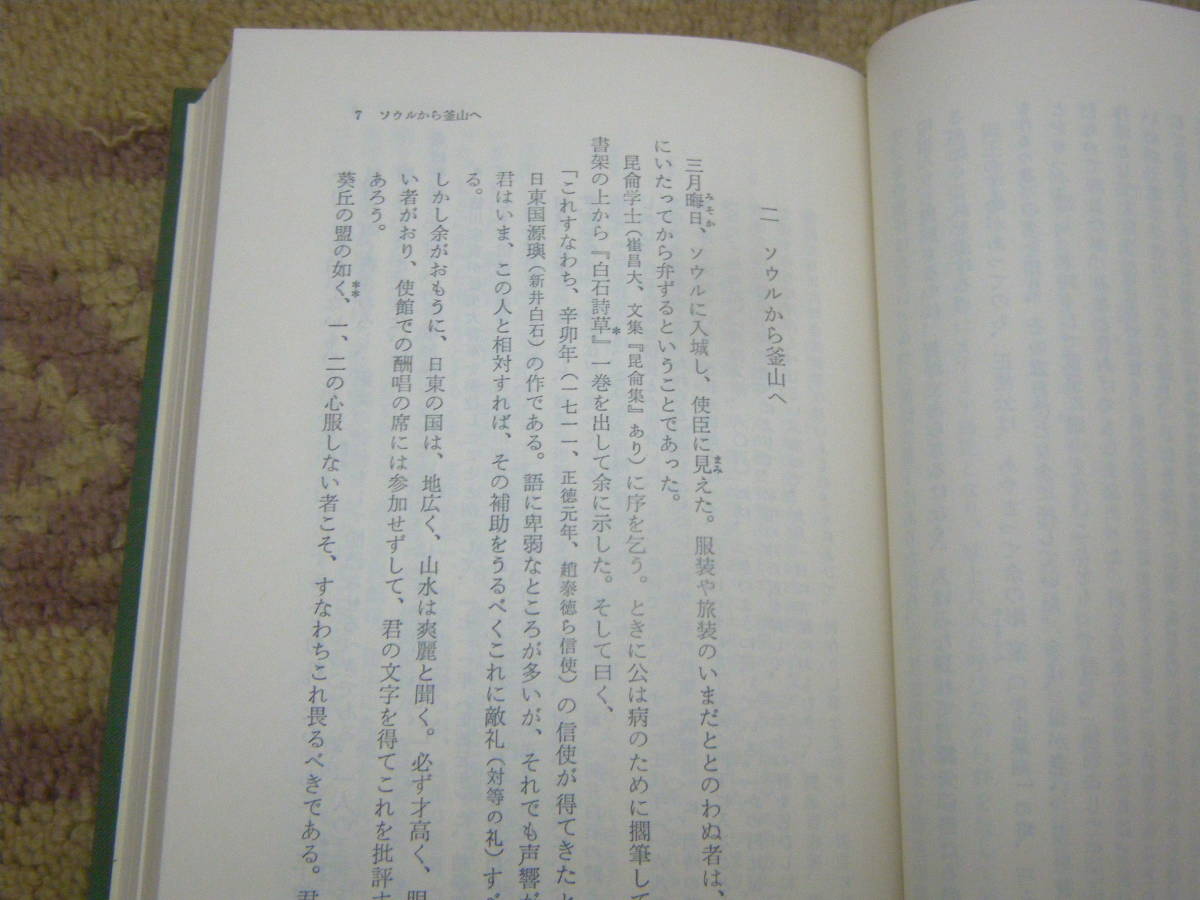 7 ソウルから釜山へ
二 ソウルから釜山へ
三月晦日、ソウルに入城し、使臣に見えた。服装や旅装のいまだととのわぬ者は、
みそか
まみ
にいたってから弁ずるということであった。
昆侖学士（崔昌大、文集『昆侖集』あり）に序を乞う。ときに公は病のために擱筆して
書架の上から『白石詩草』一巻を出して余に示した。そして曰く、
*
「これすなわち、辛卯年（一七一一、正徳元年、趙泰億ら信使）の信使が得てきたと
日東国源璵（新井白石）の作である。語に卑弱なところが多いが、それでも声響が
君はいま、この人と相対すれば、その補助をうるべくこれに敵礼（対等の礼）すべ
る。
しかし余がおもうに、日東の国は、地広く、山水は爽麗と聞く。必ず才高く、眼
い者がおり、使館での酬唱の席には参加せずして、君の文字を得てこれを批評す
あろう。
葵丘の盟の如く、一、二の心服しない者こそ、すなわちこれ畏るべきである。君
**